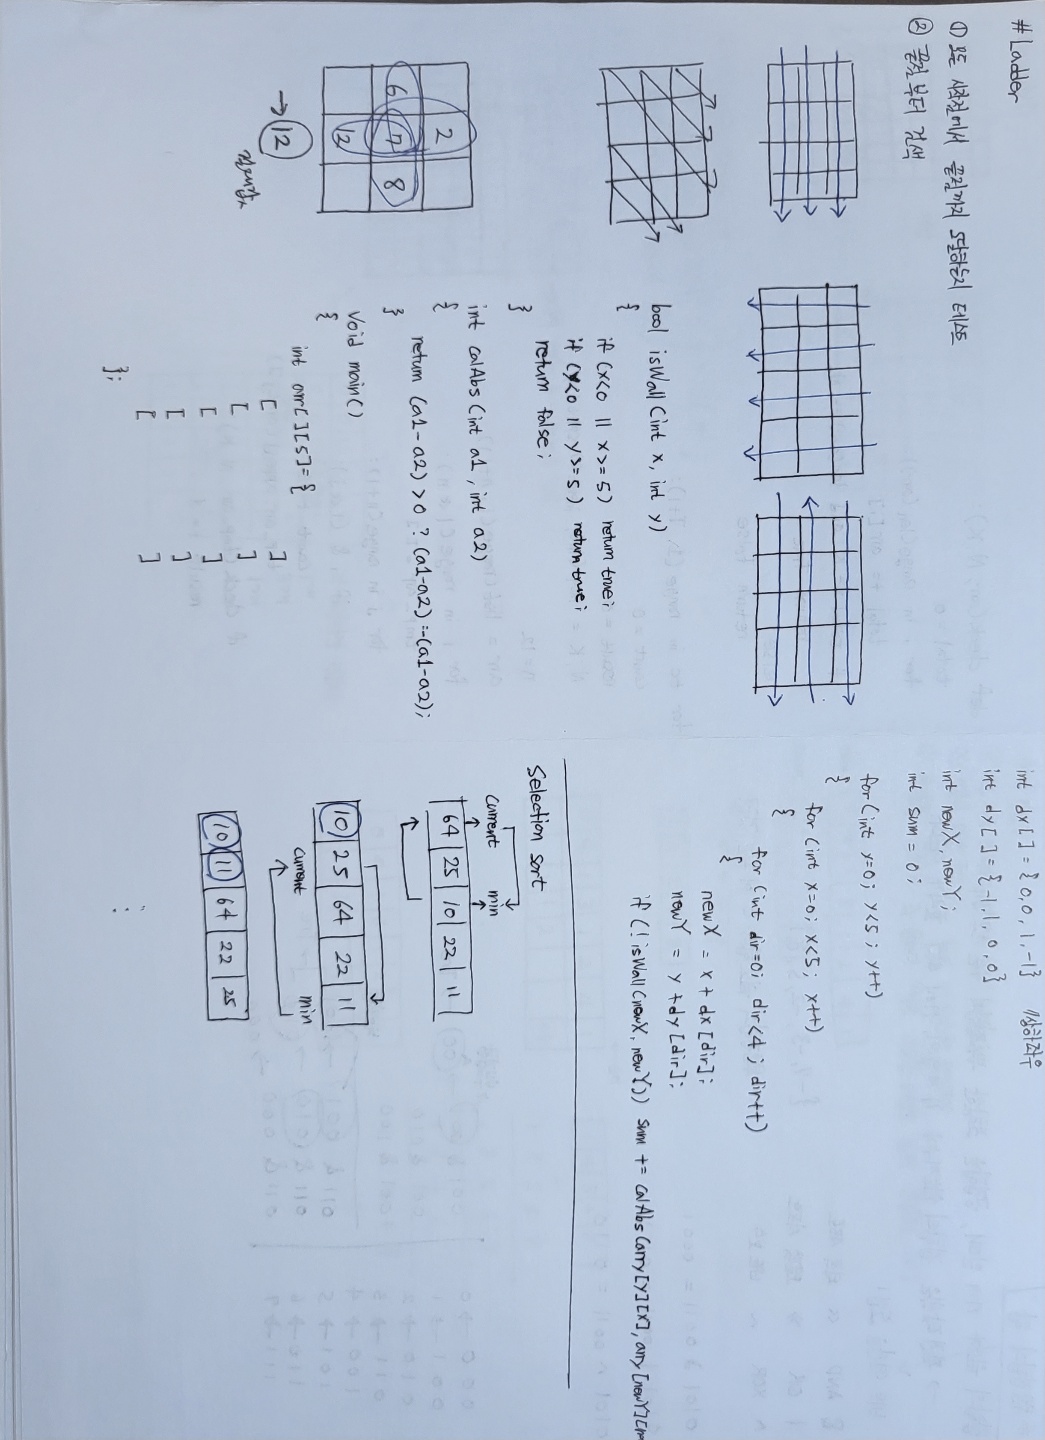 #Ladder
① 모든 시작점에서 끝점까지 도달하는지 테스트
② 끝점부터 검색
2
6 7 8
12
→ 12
절대값
bool isWall (int x, int y)
{
if (x<0 || x>=5) return true;
if (y<0 || y>=5) return true;
return false;
}
int calAbs (int a1, int a2)
{
return (a1-a2) >0 ? (a1-a2) :-(a1-a2);
}
void main()
{
int arr[][5]={
[ ]
[ ]
[ ]
[ ]
[ ]
};
int dx[] = {0,0,1,-1} //상하좌우
int dy[] = {-1,1,0,0}
int newX, newY;
int sum = 0;
for (int y=0; y<5; y++)
{
for (int x=0; x<5; x++)
{
for (int dir=0; dir<4; dir++)
{
newX = x + dx[dir];
newY = y + dy[dir];
if (!isWall(newX, newY)) sum += calAbs(array[y][x], array[newY][
Selection sort
current min
64 25 10 22 11
10 25 64 22 11
current min
10 11 64 22 25
⋮